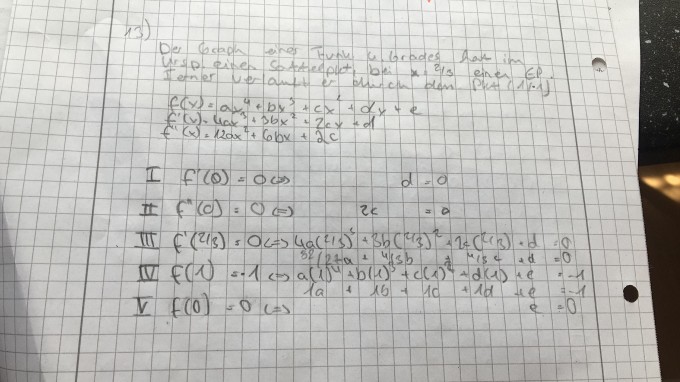 13)
Der Graph einer Funk. 4. Grades hat im
Ursp. einen Sattelpkt, bei x = 2/3 einen EP.
Ferner verläuft er durch den Pkt (1/-1)
f(x) = ax⁴ + bx³ + cx² + dx + e
f'(x) = 4ax³ + 3bx² + 2cx + d
f''(x) = 12ax² + 6bx + 2c
I f'(0) = 0 <=> d = 0
II f''(0) = 0 <=> 2c = 0
III f'(2/3) = 0 <=> 4a(2/3)³ + 3b(2/3)² + 2c(2/3) + d = 0
32/27a + 4/3b + 4/3c + d = 0
IV f(1) = -1 <=> a(1)⁴ + b(1)³ + c(1)² + d(1) + e = -1
1a + 1b + 1c + 1d + e = -1
V f(0) = 0 <=> e = 0